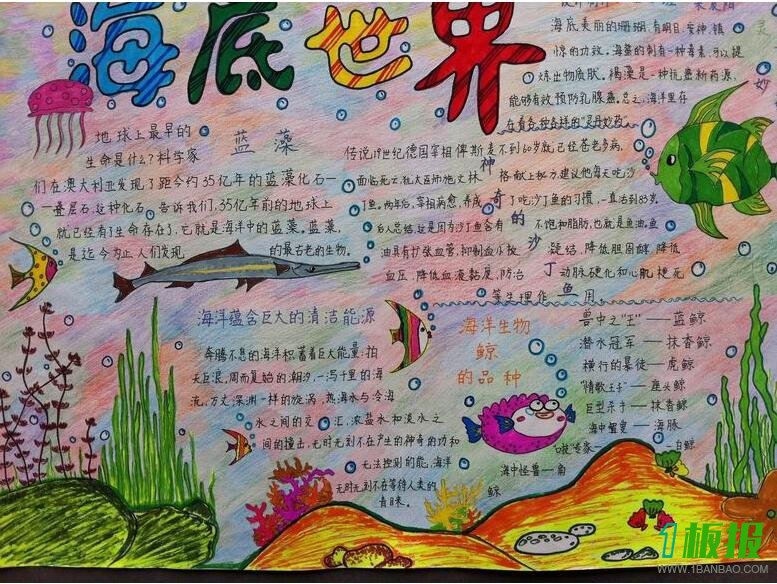 海底世界
海底美丽的珊瑚,有明目,安神,镇
惊的功效。海蜇的刺有一种毒素,可以提
炼出物质肽。褐藻是一种抗癌新药源,
能够有效预防乳腺癌。总之,海洋里存
在着各种各样的"灵丹妙药"。
灵
妙
地球上最早的
生命是什么?科学家
蓝藻
们在澳大利亚发现了距今约35亿年的蓝藻化石一
一叠层石,这种化石告诉我们,35亿年前的地球上
就已经有了生命存在了,它就是海洋中的蓝藻。蓝藻,
是迄今为止人们发现的最古老的生物。
神奇的沙丁鱼
传说19世纪德国宰相俾斯麦不到60岁就已经苍老多病,
面临死亡,犹太医师施文林格献上秘方,建议他每天吃沙
丁鱼。两年后,宰相病愈,养成了吃沙丁鱼的习惯,一直活到83岁。
后人总结,这是因为沙丁鱼含有不饱和脂肪,也就是鱼油,鱼
油具有扩张血管,抑制血小板凝结,降低胆固醇,降低
血压,降低血液黏度,防治动脉硬化和心肌梗死
等生理作用。
海洋蕴含巨大的清洁能源
奔腾不息的海洋积蓄着巨大能量:拍
天巨浪,周而复始的潮汐,一泻千里的海
流,万丈深渊一样的旋涡,热海水与冷海
水之间的交汇,浓盐水和淡水之
间的撞击,无时无刻不在产生的神奇的功和
无法控制的能,海洋
无时无刻不在等待人类的
青睐。
海洋生物
鲸
的品种
兽中之"王"——蓝鲸
潜水冠军——抹香鲸
横行的暴徒——虎鲸
"情歌王子"——座头鲸
巨型杀手——抹香鲸
海中智叟——海豚
——白鲸
海中怪兽—角
鲸
1板报
WWW.1BANBAO.COM